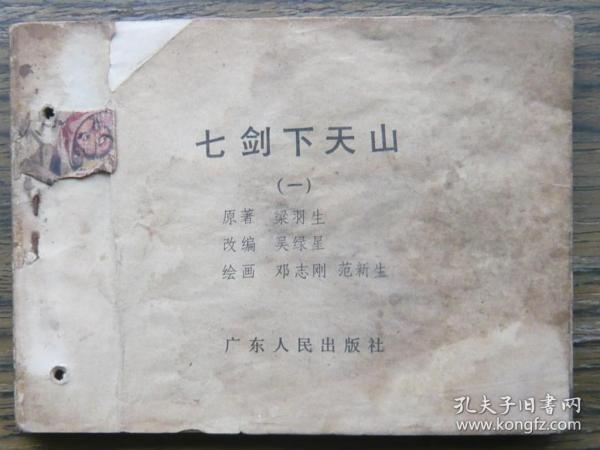 七剑下天山
（一）
原著 梁羽生
改编 吴绿星
绘画 邓志刚 范新生
广东人民出版社
孔夫子旧书网
www.kongfz.com